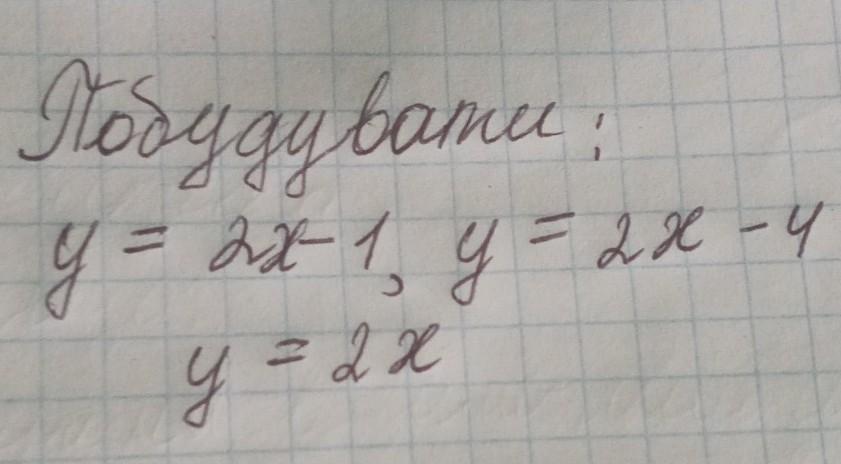 Побудувати:
y = 2x-1, y = 2x - 4
y = 2x